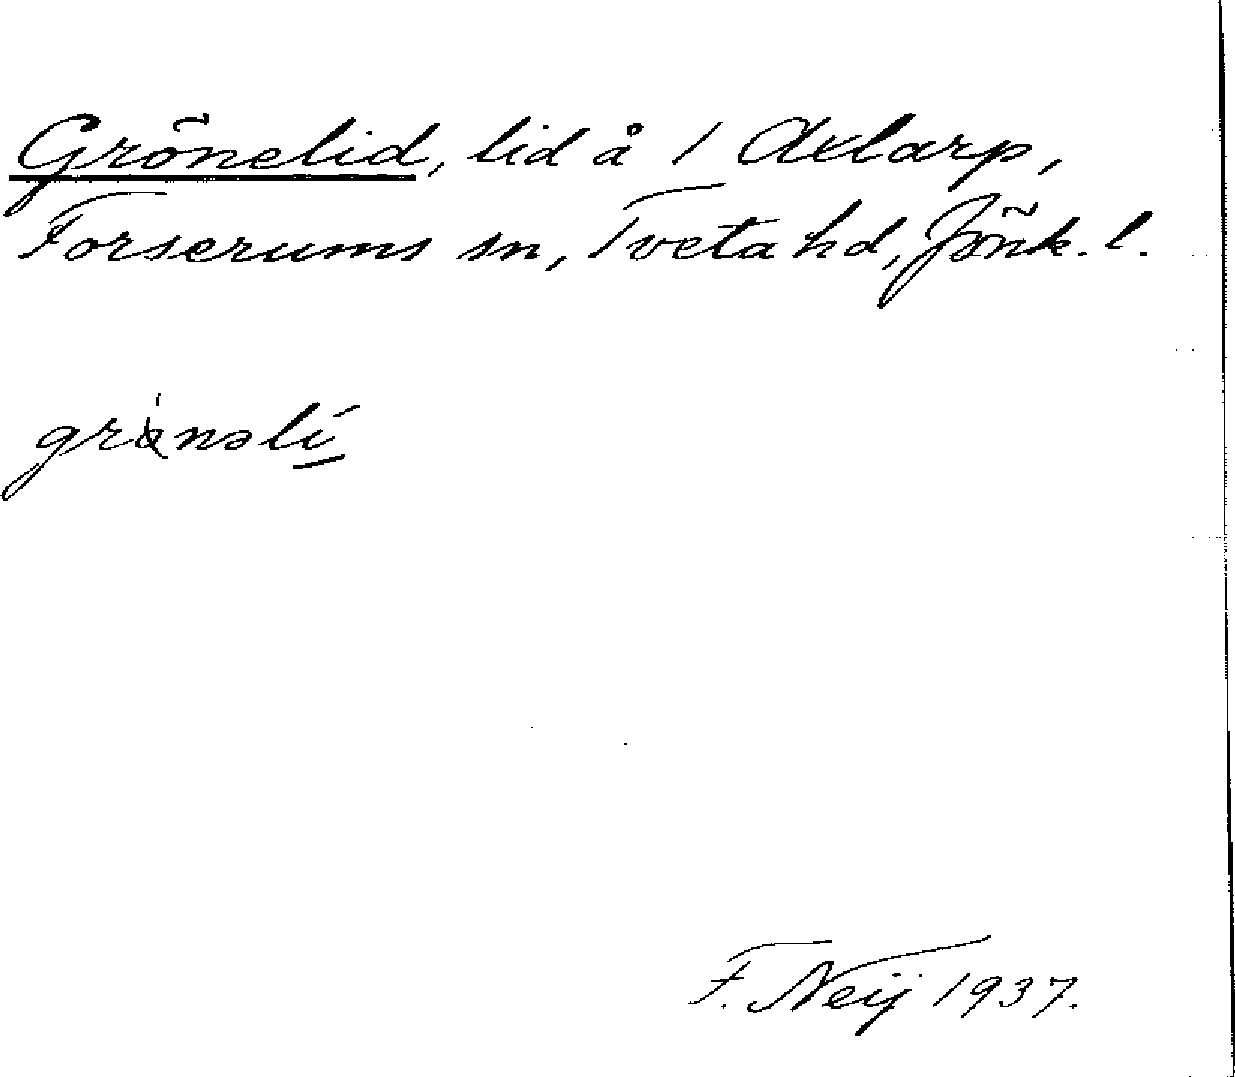 Grönelid, lid å 1 Axlarp,
Forserums sn, Tveta hd, Jönk. l.
F. Neij 1937.